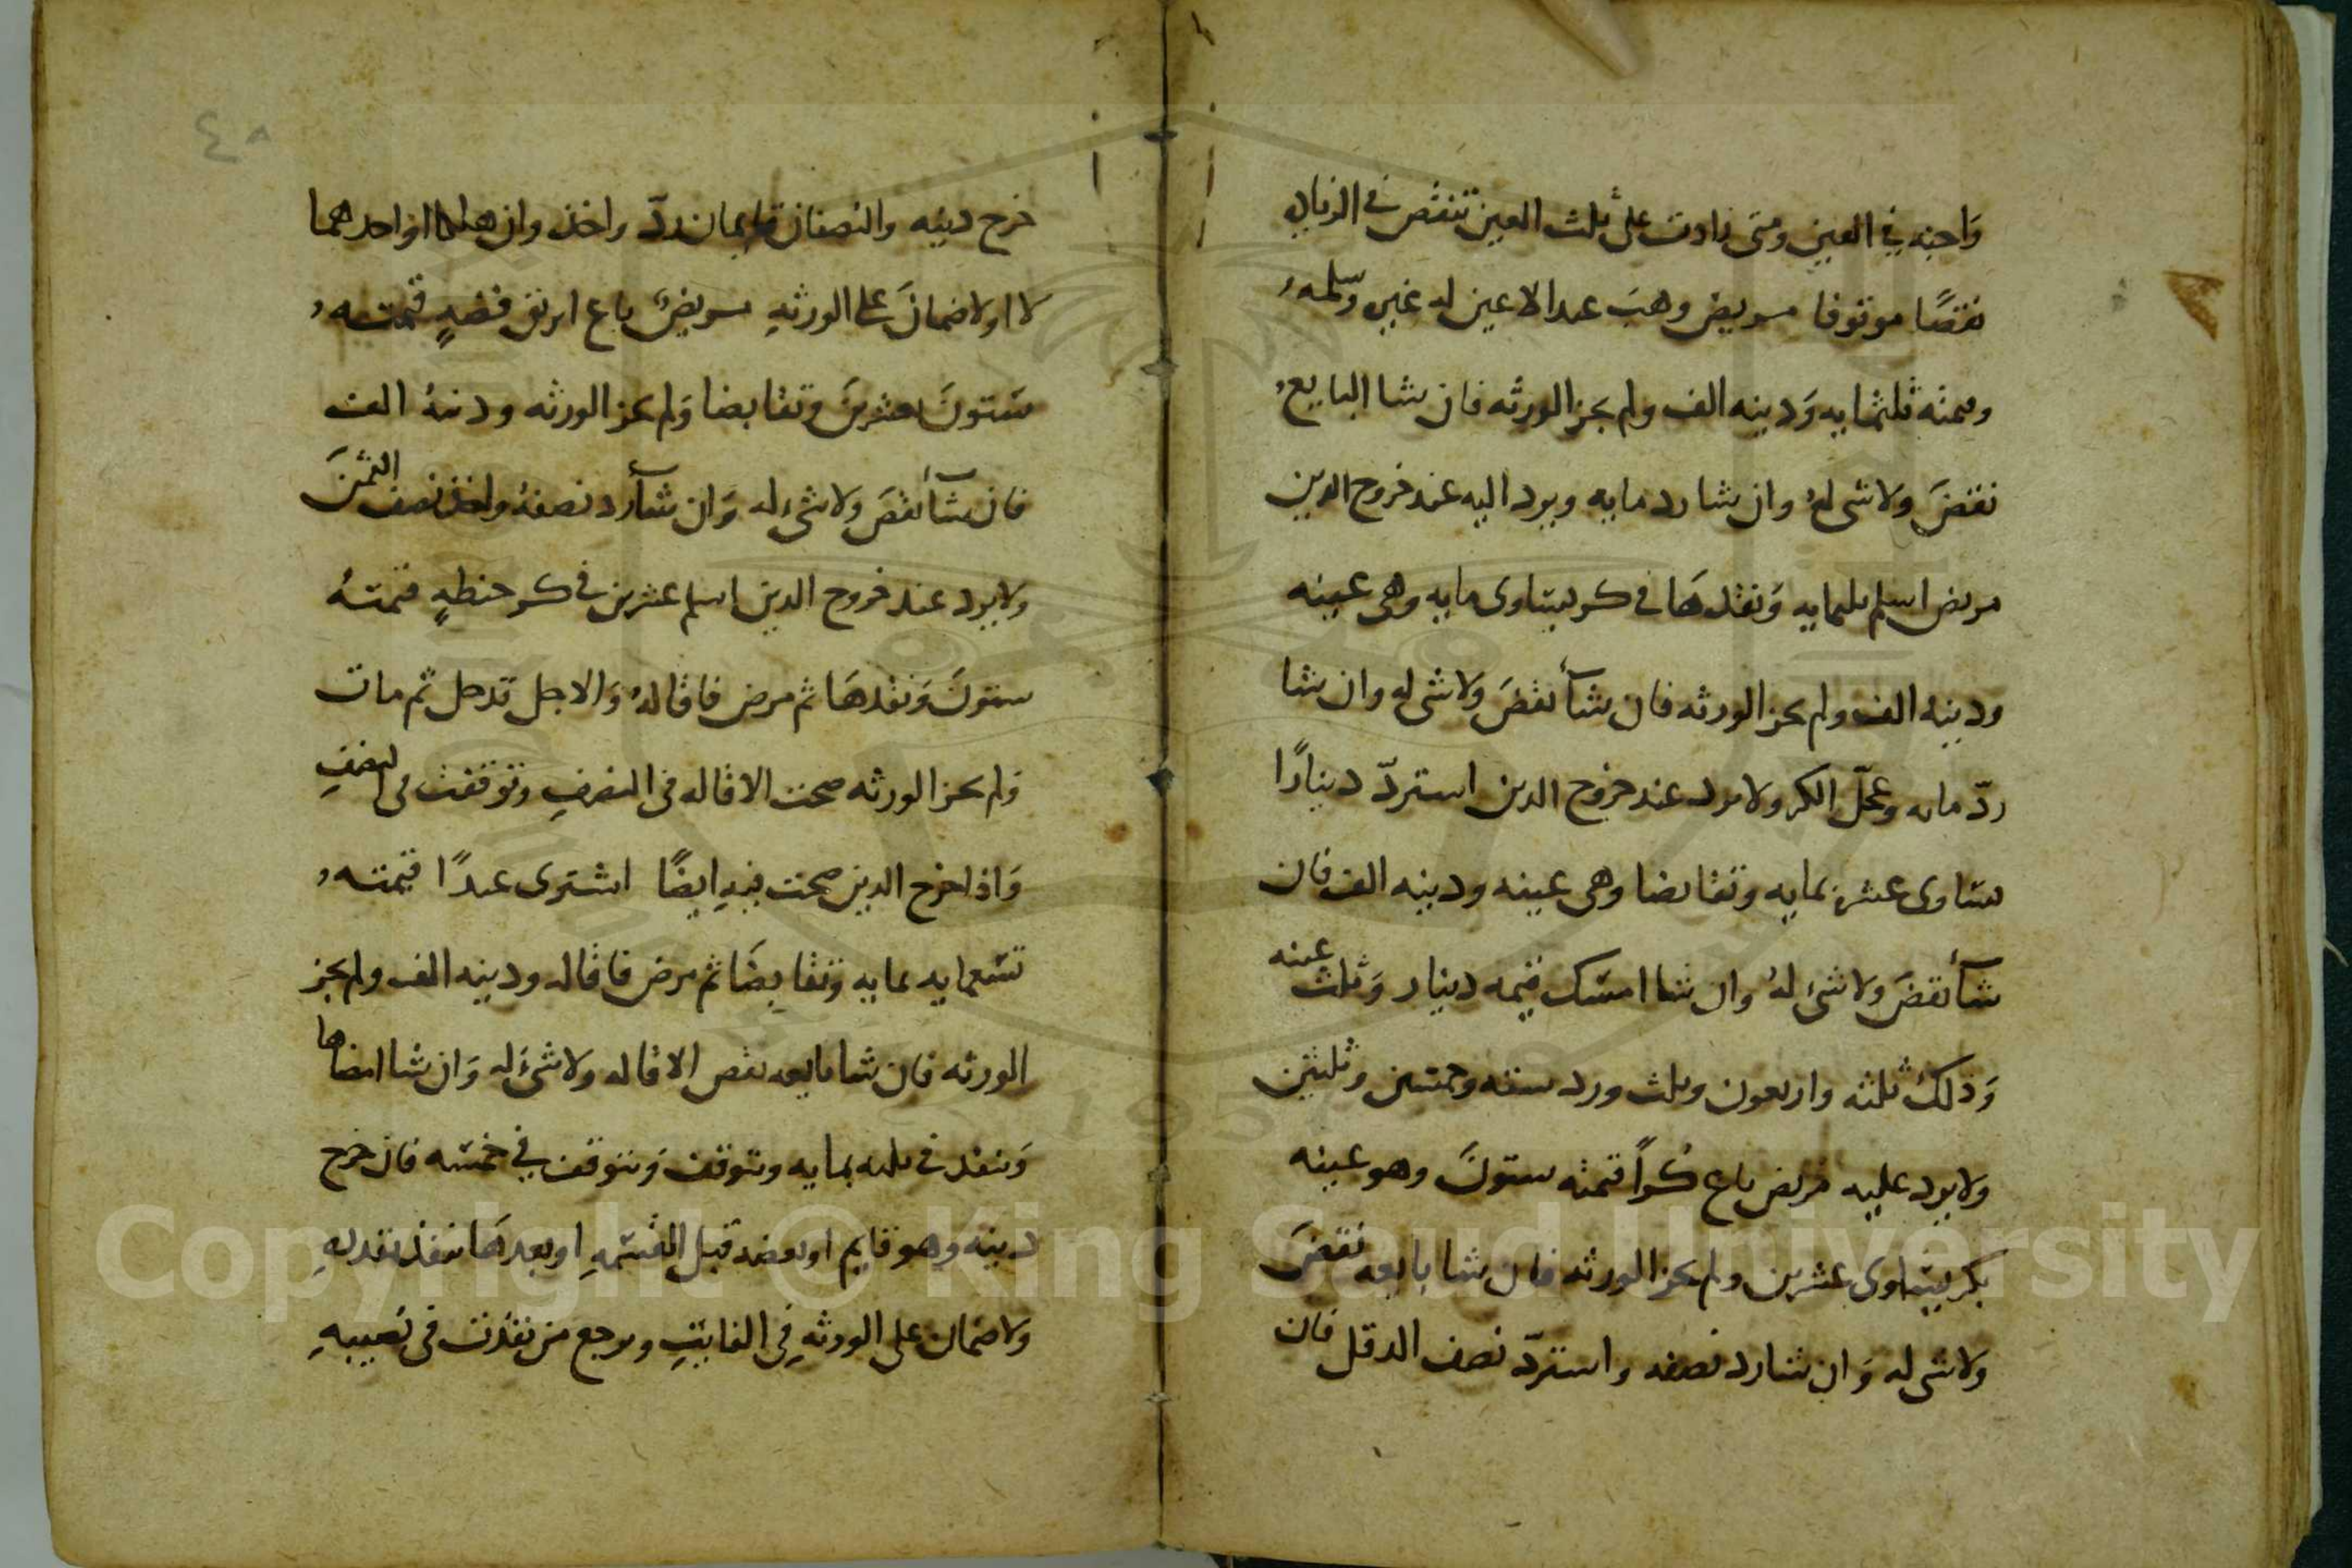 واجبه في العين ومتى زادت على ثلث العين تنقض في الزياده
نقضًا موقوفا مريض وهب عبدا لا عين له غيره وسلمه
وقيمته ثلثمايه وَدينه الف ولم يجز الورثه فان شا البايع
نقضَ ولا شى لهُ وان شا رد مايه ويرد اليه عند خروج الدين
مريض اسلم ثلثمايه وَنقدهَا في كر يساوى مايه وهى عينه
ودينه الف ولم يجز الورثه فان شآ نقضَ ولا شى له وان شا
ردّ مايه وعجّل الكر ولا يرد عند خروج الدين استردّ دينارًا
يساوى عشره بمايه وتقابضا وهى عينه ودينه الف فان
شآ نقضَ ولا شئ لهُ وان شا امسك قيمه دينار وَثلث عينه
وَذلك ثلثه واربعون وثلث ورد سته وخمسين وثلثين
ولا يرد عليه مريض باع كُراً قيمته ستونَ وهو عينه
بكر يساوى عشرين ولم يجز الورثه فان شا بايعه نقضَ
ولا شى له وَان شا رد نصفه واستردّ نصف الدقل فان
٤٠
خرج دينه والنصفان قايمان ردّ واخذ وان هلكا او احدهما
لا اولا ضمانَ على الورثهِ مريضٌ باع ابريق فضهٍ قيمته
ستونَ بعشرينَ وتقابضا وَلم يجز الورثه ودينهُ الف
فان شآ نقضَ ولا شئ له وَان شآ رد نصفهُ واخذ نصف الثمنَ
ولا يرد عند خروج الدين اسلم عشرين في كر حنطهٍ قيمتهُ
ستونَ وَنقدهَا ثم مرض فاقالهُ وَالاجل قد حل ثم مات
وَلم يجز الورثه صحت الاقاله في النصفِ وتوقفت في النصفِ
وَاذا خرج الدين صحت فيهِ ايضًا اشترى عبدًا قيمته
تسعمايه بمايه وتقابضَا ثم مرض فاقاله ودينه الف ولم يجز
الورثه فان شا بايعه نقض الاقاله ولا شئَ له وَان شا امضاها
وَينفذ في ثلثه بمايه وتتوقف وَتتوقف في خمسه فان خرج
دينه وهو قايم او بعضه قبل القسمهِ او بعدهَا نفذ بقدرهِ
ولا ضمان على الورثهِ في الفايتِ ويرجع من نفذت في نصيبهِ